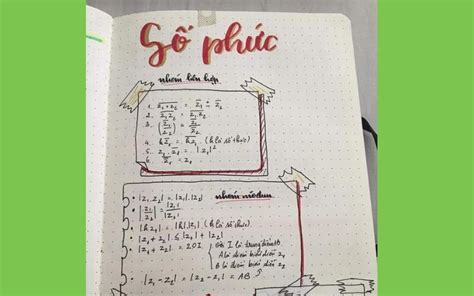 Số phức
nhóm liên hợp
1. \overline{z_1 + z_2} = \overline{z_1} + \overline{z_2}
2. \overline{z_1 z_2} = \overline{z_1} \overline{z_2}
3. \overline{\left(\frac{z_1}{z_2}\right)} = \frac{\overline{z_1}}{\overline{z_2}}
4. \overline{k z_1} = k \overline{z_1} (k là số thực)
5. z_1 \overline{z_1} = |z_1|^2
6. \overline{\overline{z_1}} = z_1
nhóm môđun
• |z_1 z_2| = |z_1| |z_2|
• \left|\frac{z_1}{z_2}\right| = \frac{|z_1|}{|z_2|}
• |k z_1| = |k| |z_1| (k là số thực)
• |z_1 + z_2| ≤ |z_1| + |z_2|
• |z_1 + z_2| = 2OI
I là trung điểm AB
A là điểm biểu diễn z_1
B là điểm biểu diễn z_2
• |z_1 - z_2| = |z_2 - z_1| = AB